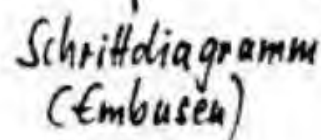 Schrittdiagramm
(Embusen)